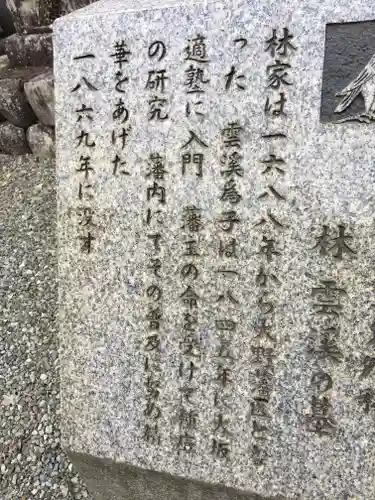 林 雲溪の墓
林家は一六八八年から大野藩医とな
った 雲溪爲子は一八四五年に大坂
適塾に入門 藩主の命を受けて種痘
の研究 藩内にてその普及に努め精
華をあげた
一八六九年に没す